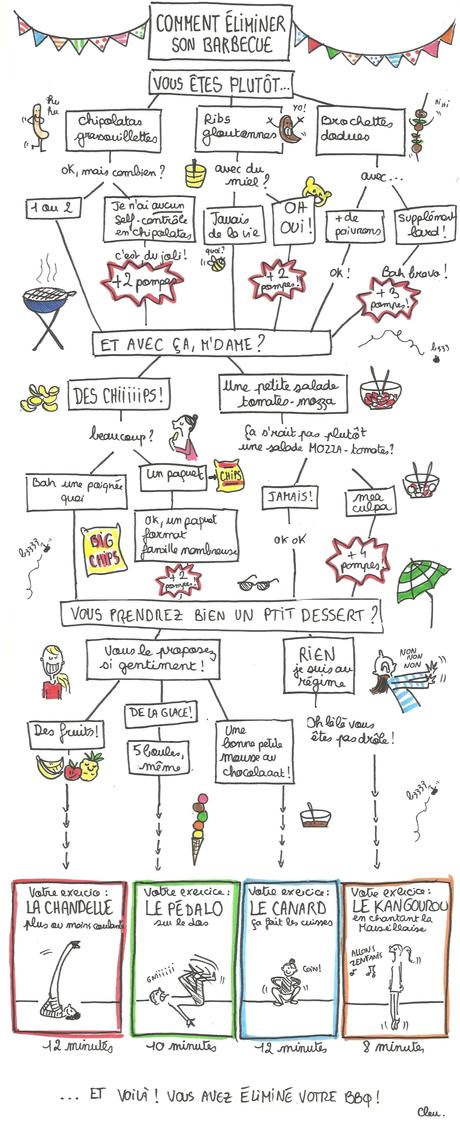 COMMENT ÉLIMINER
SON BARBECUE
VOUS ÊTES PLUTÔT...
hu
hu
Chipolatas
grasouillettes
Ribs
gloutonnes
YO!
Brochettes
dodues
hi hi
OK, mais combien ?
avec du
miel ?
avec...
1 ou 2
Je n'ai aucun
self-contrôle
en chipolatas
Jamais
de la vie
OH
OUI !
+ de
poivrons
Supplément
lard !
c'est du joli !
quoi ?
OK !
Bah bravo !
+2 pompes
+2
pompes!
+3
pompes!
ET AVEC ÇA, M'DAME ?
bzzz
DES CHIIIIIPS !
Une petite salade
tomates-mozza
beaucoup ?
Ça s'rait pas plutôt
une salade MOZZA-tomates ?
Bah une poignée
quoi
Un paquet
CHIPS
JAMAIS !
mea
culpa
BIG
CHIPS
OK, un paquet
format
famille nombreuse
OK OK
bzzzz
+2
pompes!
+4
pompes!
VOUS PRENDREZ BIEN UN PTIT DESSERT ?
Vous le proposez
si gentiment !
RIEN
je suis au
régime
NON
NON
NON
NON
Des fruits !
DE LA GLACE !
5 boules,
même
Une
bonne petite
mousse au
chocolaaat !
Oh lèlè vous
êtes pas drôle !
bzzzz
Votre exercice :
LA CHANDELLE
plus ou moins coulante
12 minutes
Votre exercice :
LE PÉDALO
sur le dos
GNIIIIII
10 minutes
Votre exercice :
LE CANARD
ça fait les cuisses
COIN!
12 minutes
Votre exercice :
LE KANGOUROU
en chantant la
Marseillaise
ALLONS
ZENFANTS
8 minutes
... ET VOILÀ ! VOUS AVEZ ÉLIMINÉ VOTRE BBQ !
Cleu.